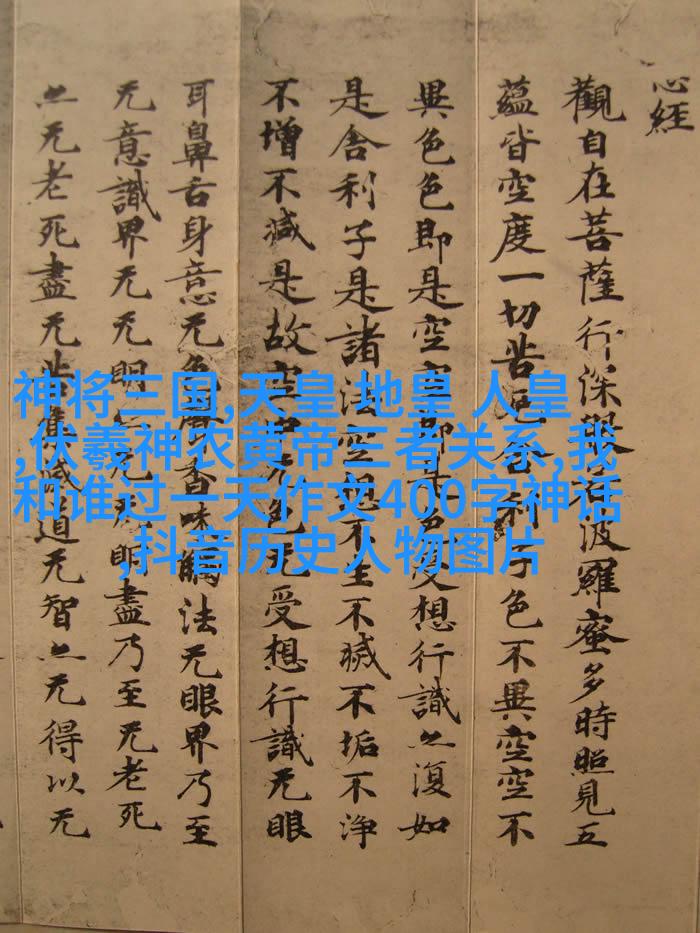 心経
觀自在菩薩行深般若波羅蜜多時照見五
蘊皆空度一切苦厄舍利子色不異空空不
異色色即是空空即是色受想行識亦復如
是舍利子是諸法空相不生不滅不垢不淨
不增不減是故空中无色无受想行識无眼
耳鼻舌身意无色聲香味觸法无眼界乃至
无意識界无无明亦无无明盡乃至无老死
亦无老死盡无苦集滅道无智亦无得以无
神将三国,天皇 地皇 人皇
,伏羲神农黄帝三者关系,我
和谁过一天作文400字神话
,抖音历史人物图片